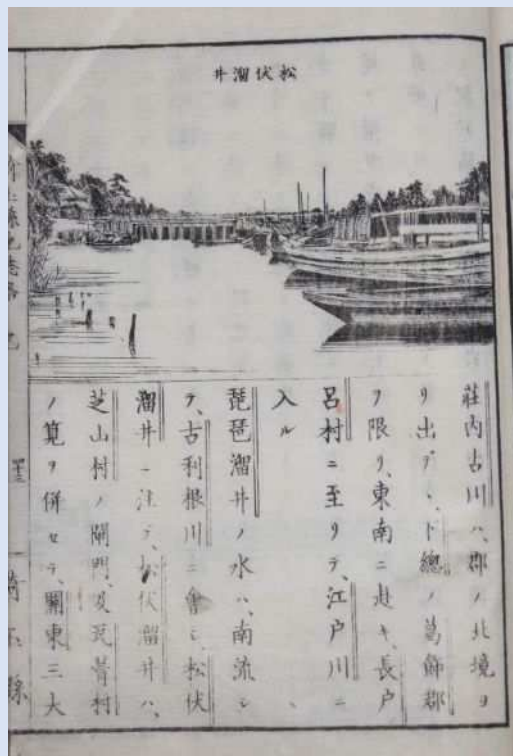 松伏溜井
荘内古川ハ、郡ノ北境ヨ
リ出デヽ、下總ノ葛飾郡
ヲ限リ、東南ニ赴キ、長戸
呂村ニ至リテ、江戸川ニ
入ル、
琵琶溜井ノ水ハ、南流シ
テ、古利根川ニ會シ、松伏
溜井ニ注テ、松伏溜井ハ、
芝山村ノ閘門、及瓦葺村
ノ筧ヲ併セテ、關東三大